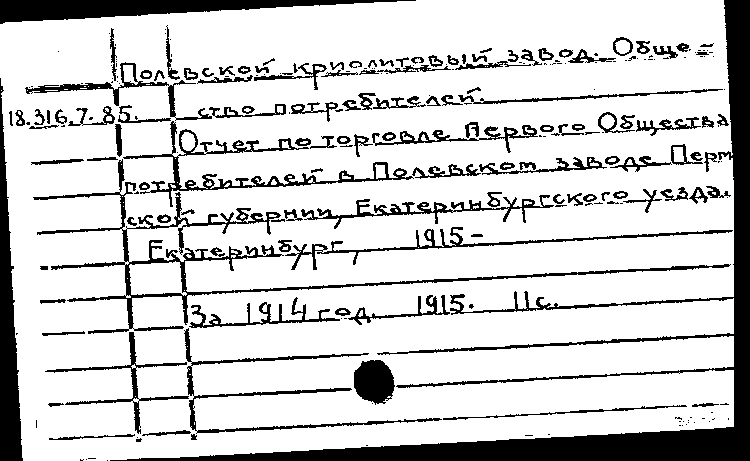 Полевской криолитовый завод. Обще-
18.316.7.85. ство потребителей.
Отчет по торговле Первого Общества
потребителей в Полевском заводе Перм
ской губернии, Екатеринбургского уезда.
Екатеринбург, 1915-
За 1914 год. 1915. 11с.